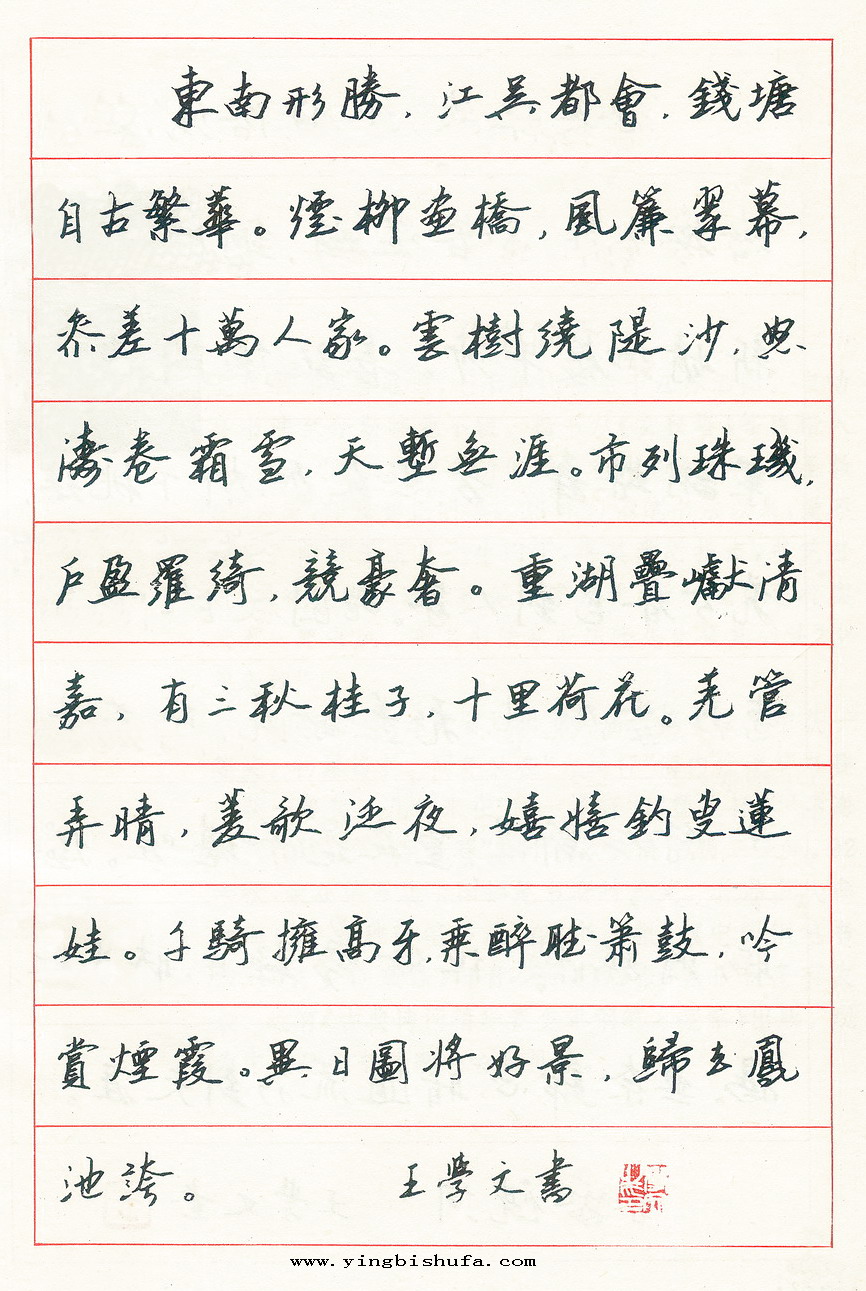 東南形勝，江吳都會，錢塘
自古繁華。煙柳畫橋，風簾翠幕，
參差十萬人家。雲樹繞隄沙，怒
濤卷霜雪，天塹無涯。市列珠璣，
戶盈羅綺，競豪奢。重湖疊巘清
嘉，有三秋桂子，十里荷花。羌管
弄晴，菱歌泛夜，嬉嬉釣叟蓮
娃。千騎擁高牙，乘醉聽簫鼓，吟
賞煙霞。異日圖將好景，歸去鳳
池誇。 王學文書
www.yingbishufa.com